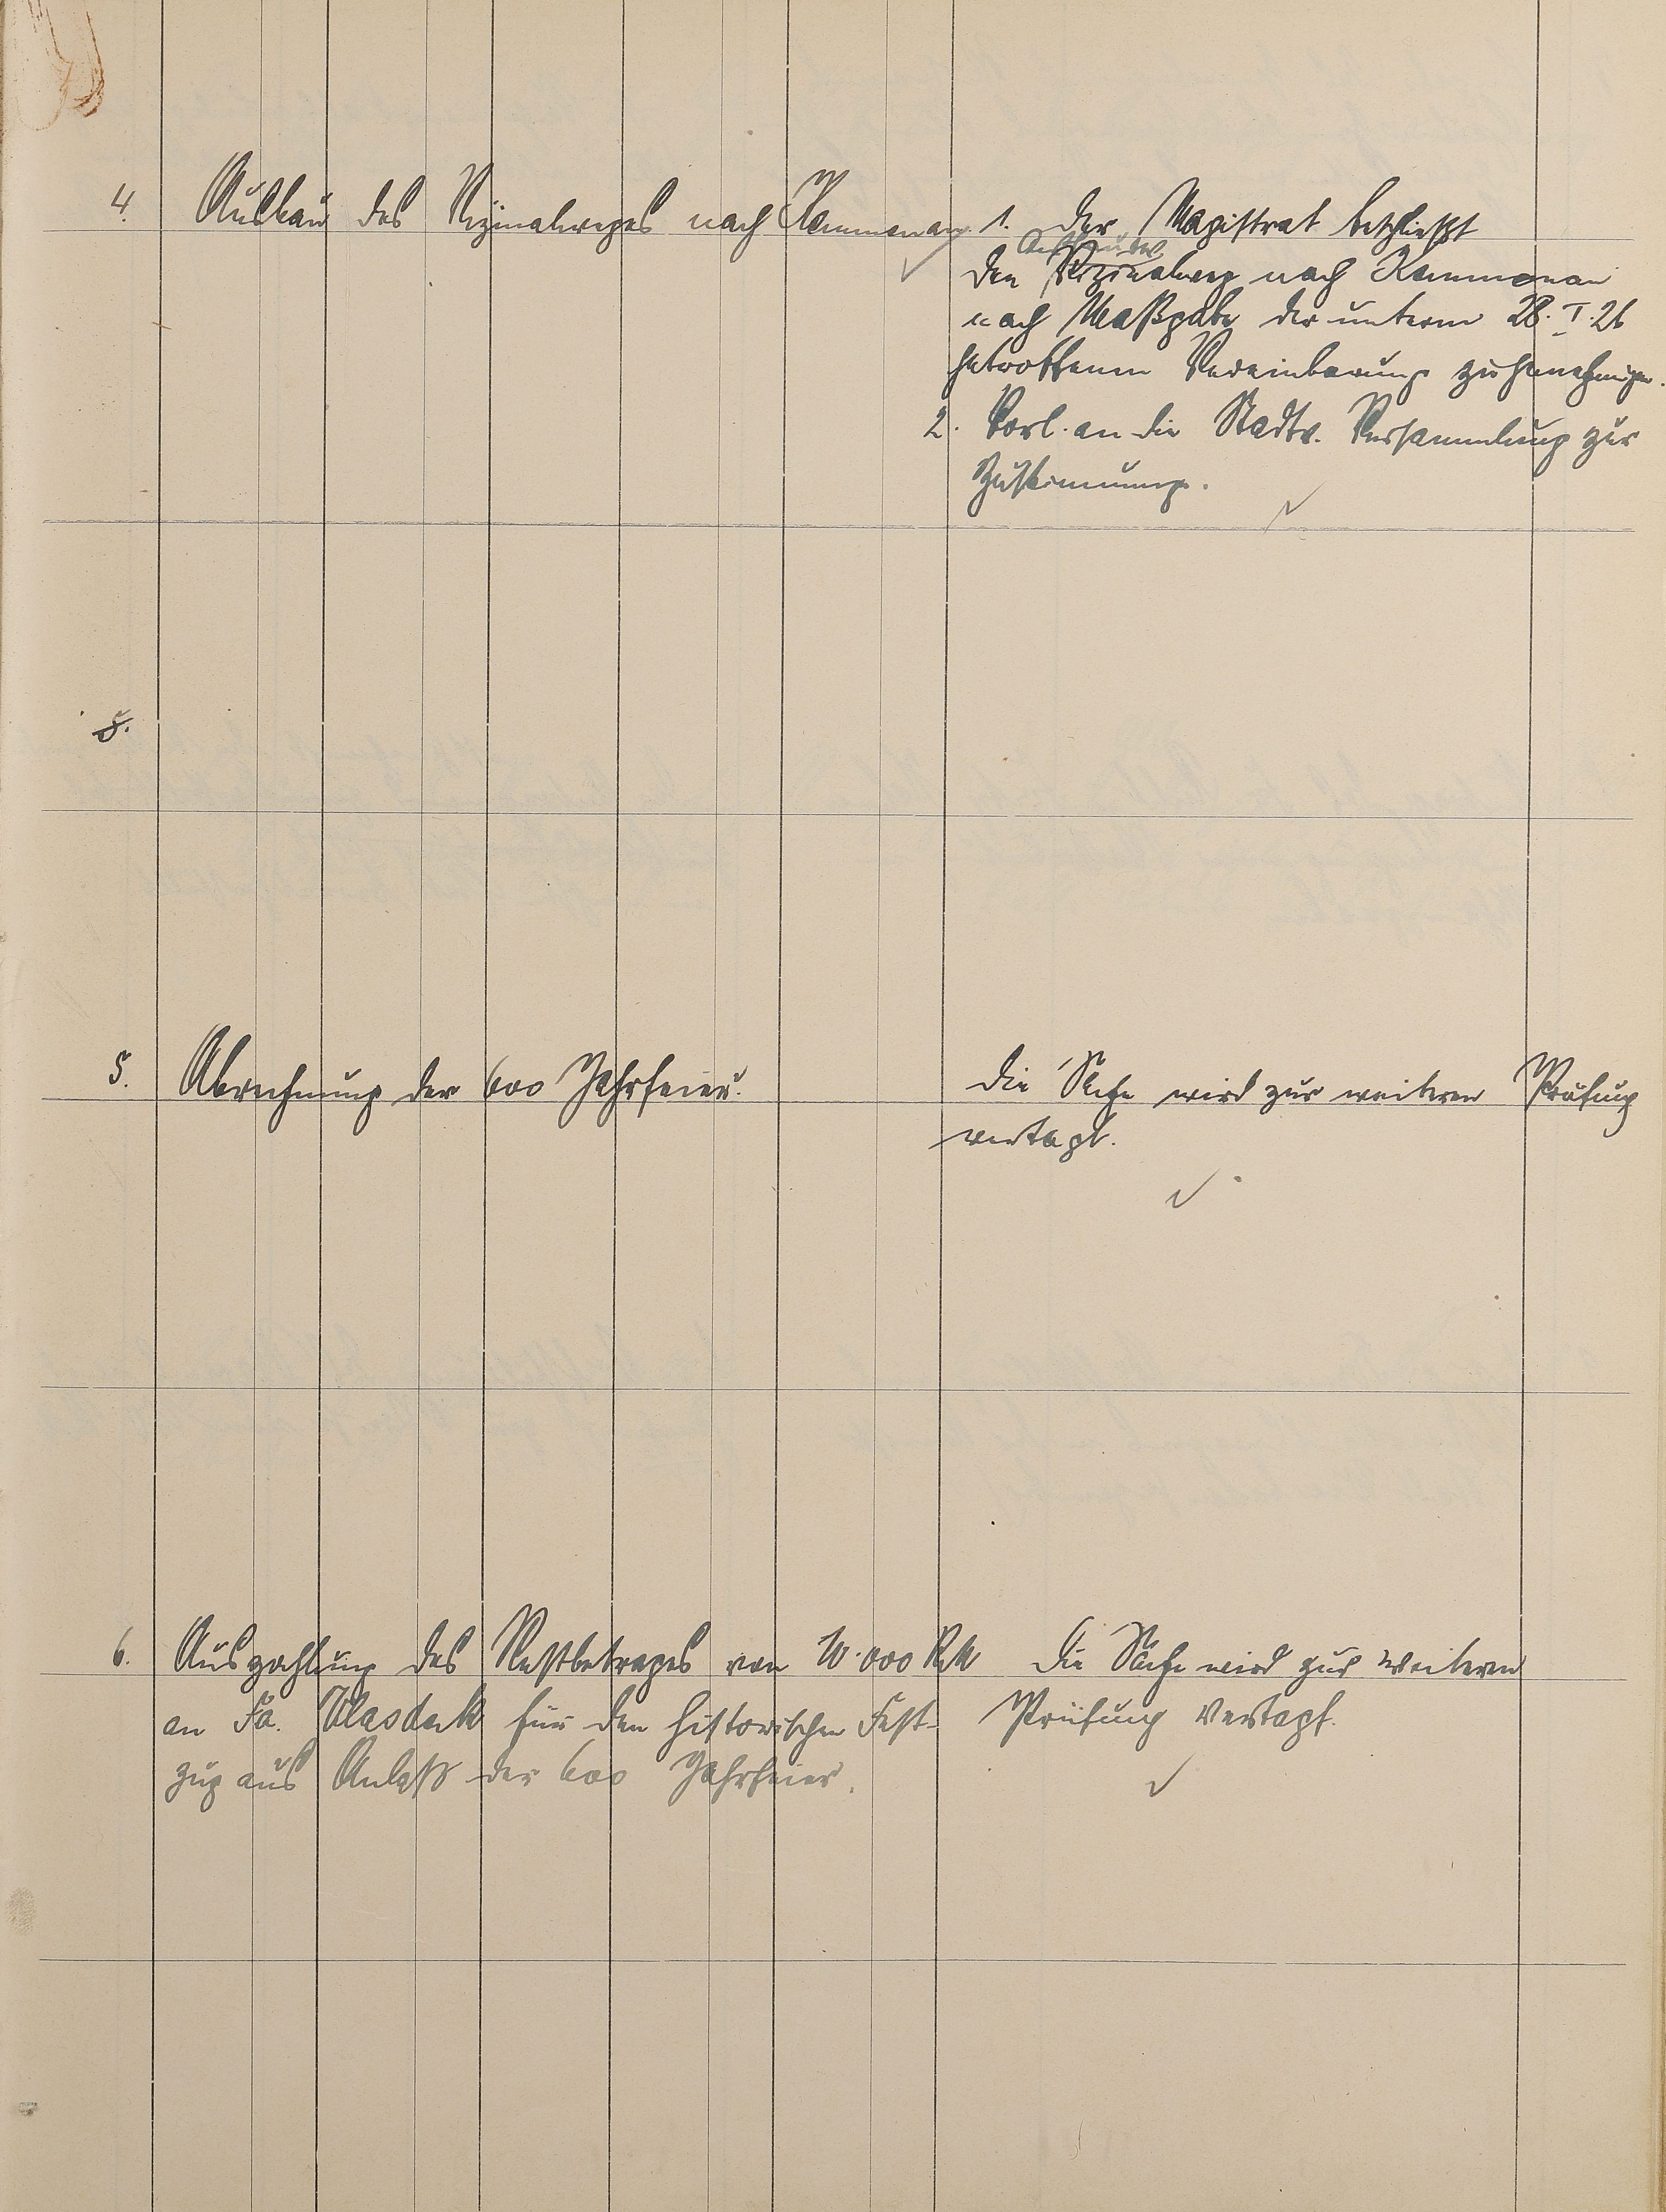 4. Ausbau des Vizinalweges nach Kammenau.
1. Der Magistrat beschließt
den Vizinalweg nach Kammenau
nach Maßgabe der unterm 28. I. 26
getroffenen Vereinbarung zu genehmigen.
2. Vorl. an die Stadtv. Versammlung zur
Zustimmung.
5.
5. Abrechnung der 600 Jahrfeier.
Die Sache wird zur weiteren Prüfung
vertagt.
6. Auszahlung des Restbetrages von 10.000 RM
an Fa. für den historischen Fest-
zug aus Anlaß der 600 Jahrfeier.
Die Sache wird zur weiteren
Prüfung vertagt.